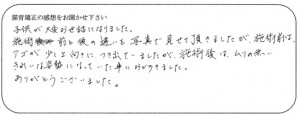 猫背矯正の感想をお聞かせ下さい
子供が大変お世話になりました。
施術前と後の違いを写真で見せて頂きましたが、施術前は、
アゴが少し上向きに、つき出ていましたが、施術後は、ムリの無い
きれいな姿勢になっていた事におどろきました。
ありがとうございました。